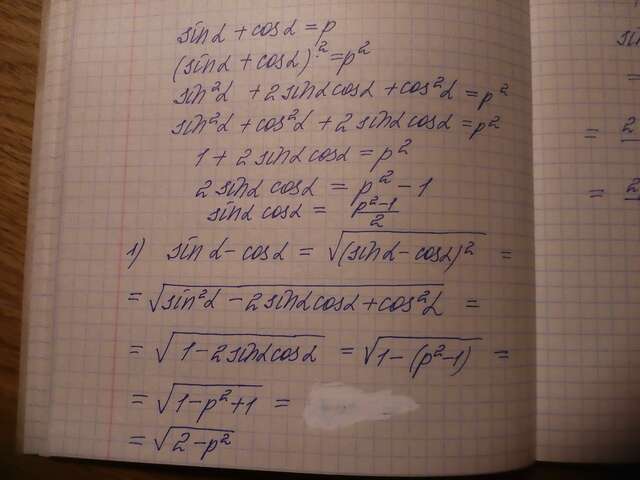 sinα + cosα = p
(sinα + cosα)² = p²
sin²α + 2sinαcosα + cos²α = p²
sin²α + cos²α + 2sinαcosα = p²
1 + 2sinαcosα = p²
2sinαcosα = p² - 1
sinαcosα = (p²-1)/2
1) sinα - cosα = √(sinα - cosα)² =
= √sin²α - 2sinαcosα + cos²α =
= √1 - 2sinαcosα = √1 - (p² - 1) =
= √1 - p² + 1 =
= √2 - p²
sin
=
= 2
= 2